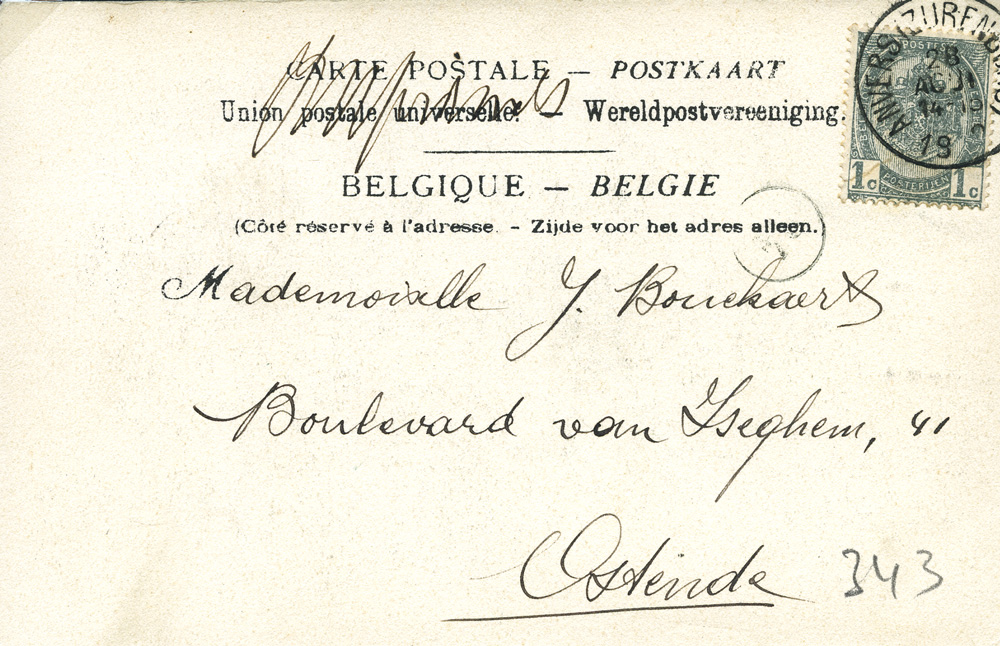 CARTE POSTALE — POSTKAART
Union postale universelle. — Wereldpostvereeniging.
BELGIQUE — BELGIE
(Côté réservé à l'adresse. - Zijde voor het adres alleen.)
Mademoiselle J. Bouckaert
Boulevard van Iseghem, 41
Ostende
343
ANVERS (ZURENBORG)
28
AOU
14
19
POSTERIJEN
1c 1c